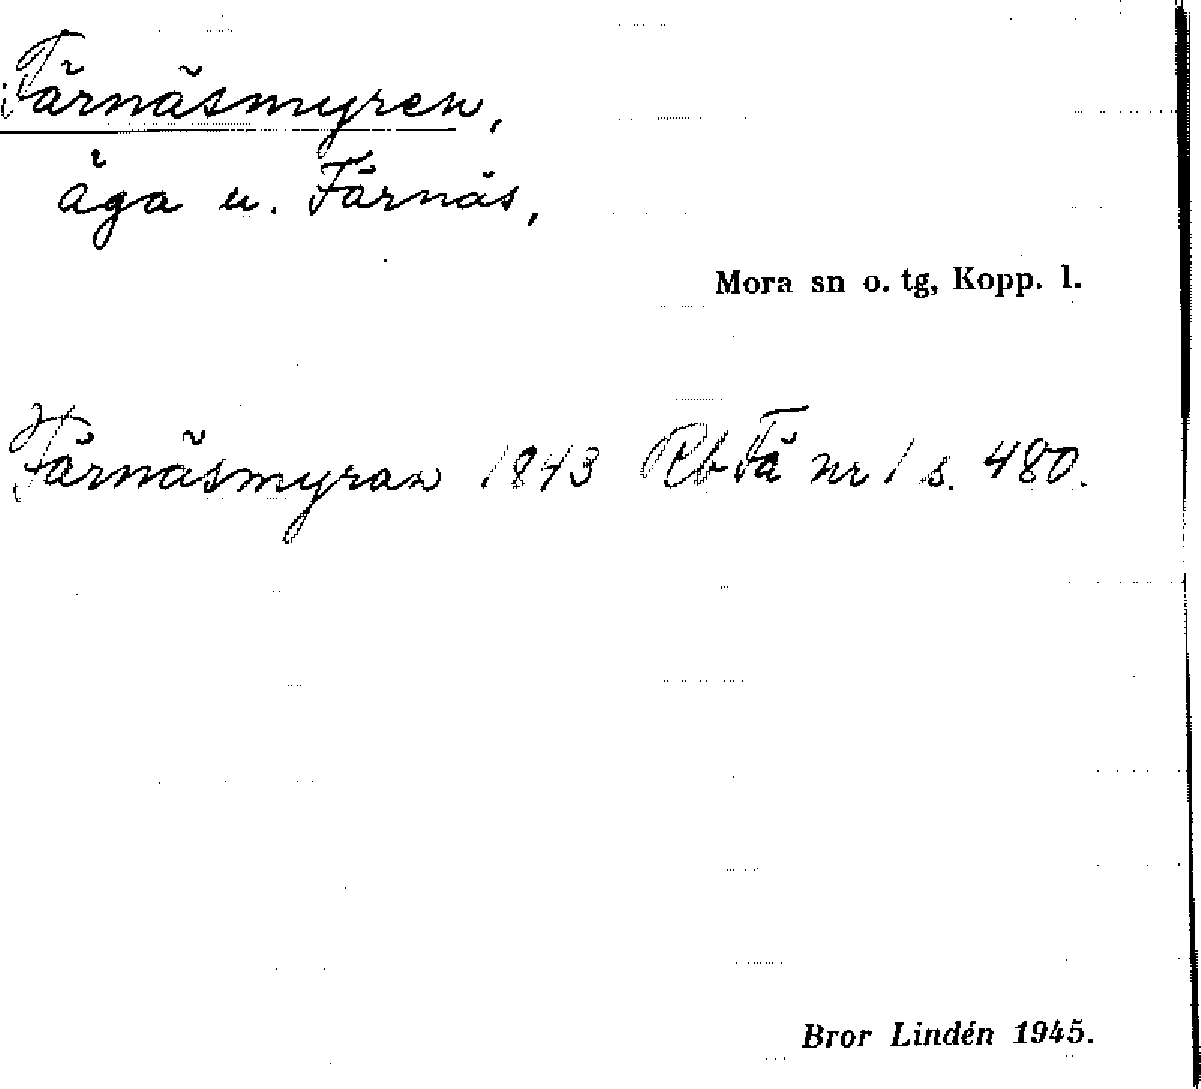 Färnäsmyren,
äga u. Färnäs,
Mora sn o. tg, Kopp. l.
Färnäsmyran 1843 Rb Fä nr 1 s. 480.
Bror Lindén 1945.